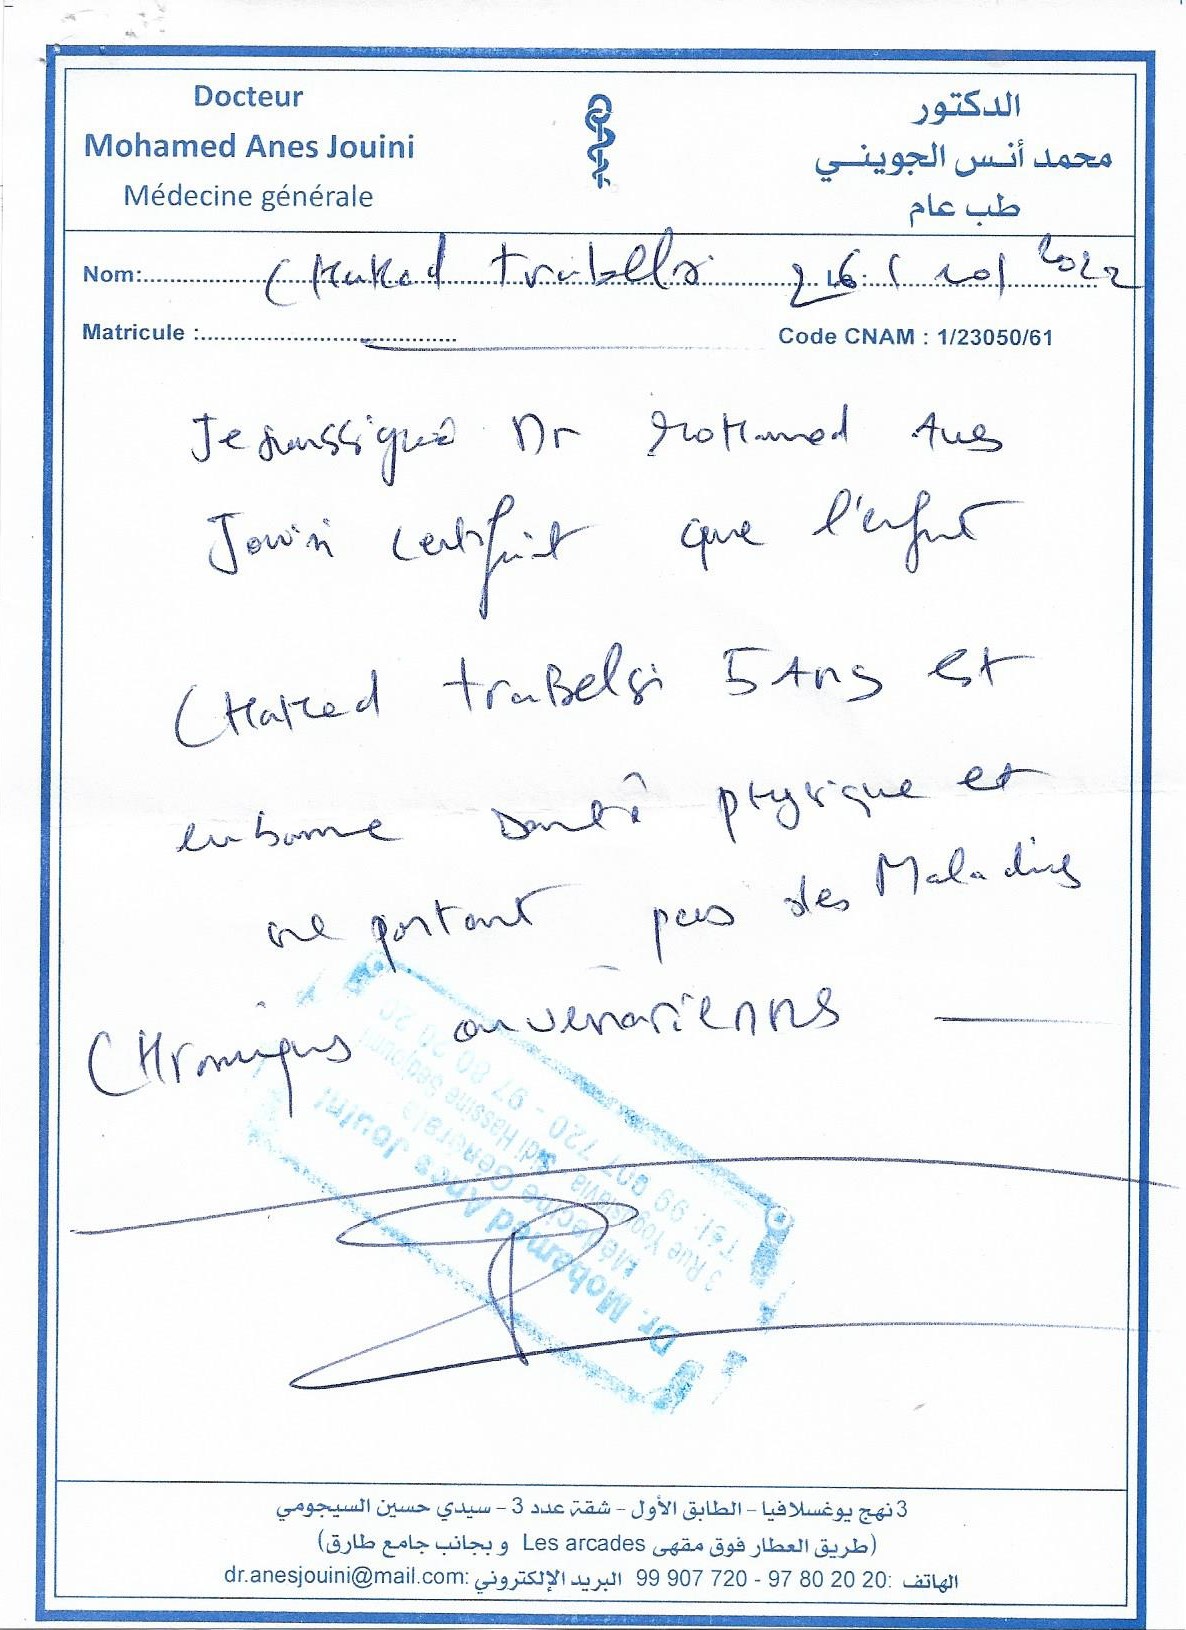 Docteur
Mohamed Anes Jouini
Médecine générale
الدكتور
محمد أنس الجويني
طب عام
Nom: CHaKed trabelsi 26 / 10 / 2022
Matricule :
Code CNAM : 1/23050/61
Je soussigné Dr MoHamed Anes
Jouini certifiait que l'enfant
CHaKed traBelsi 5 Ans est
en bonne santé pHysique et
ne portant pas des Maladies
CHroniques ou vénériennes
Dr. Mohamed Anes Jouini
Médecine Générale
3 Rue Yougoslavie Sidi Hassine Sedjoumi
Tél: 99 907 720 - 97 80 20 20
3 نهج يوغسلافيا - الطابق الأول - شقة عدد 3 - سيدي حسين السيجومي
(طريق العطار فوق مقهى Les arcades و بجانب جامع طارق)
الهاتف :20 20 80 97 - 720 907 99 البريد الإلكتروني :dr.anesjouini@mail.com